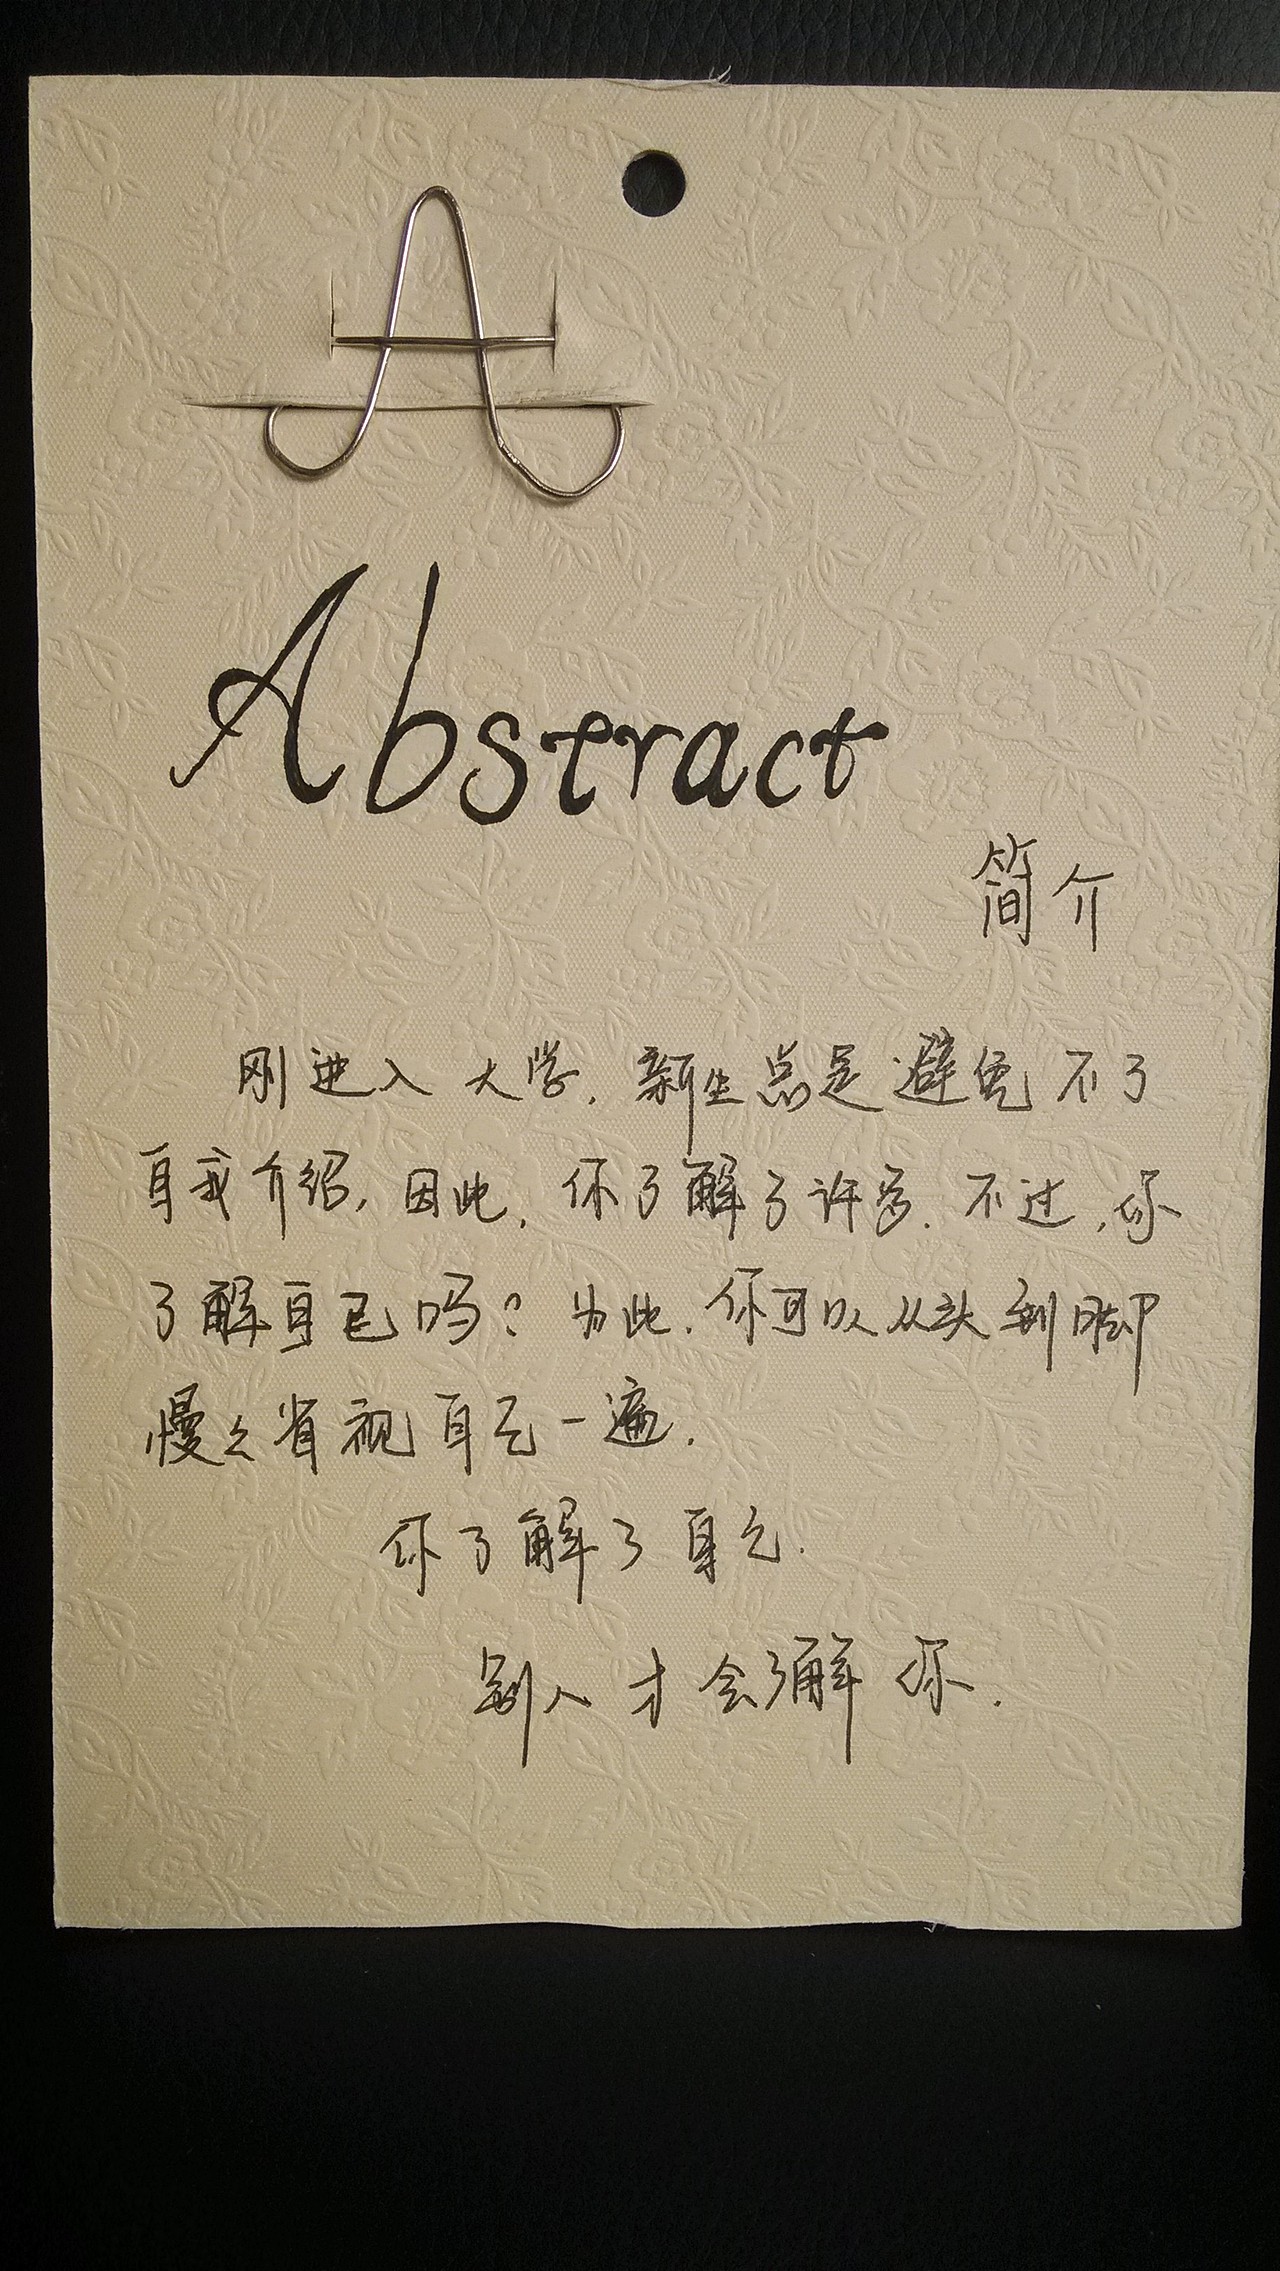 A
Abstract
简介
刚进入大学,新生总是避免不了
自我介绍,因此,你了解了许多.不过,你
了解自己吗?为此,你可以从头到脚
慢々省视自己一遍.
你了解了自己.
别人才会了解你.